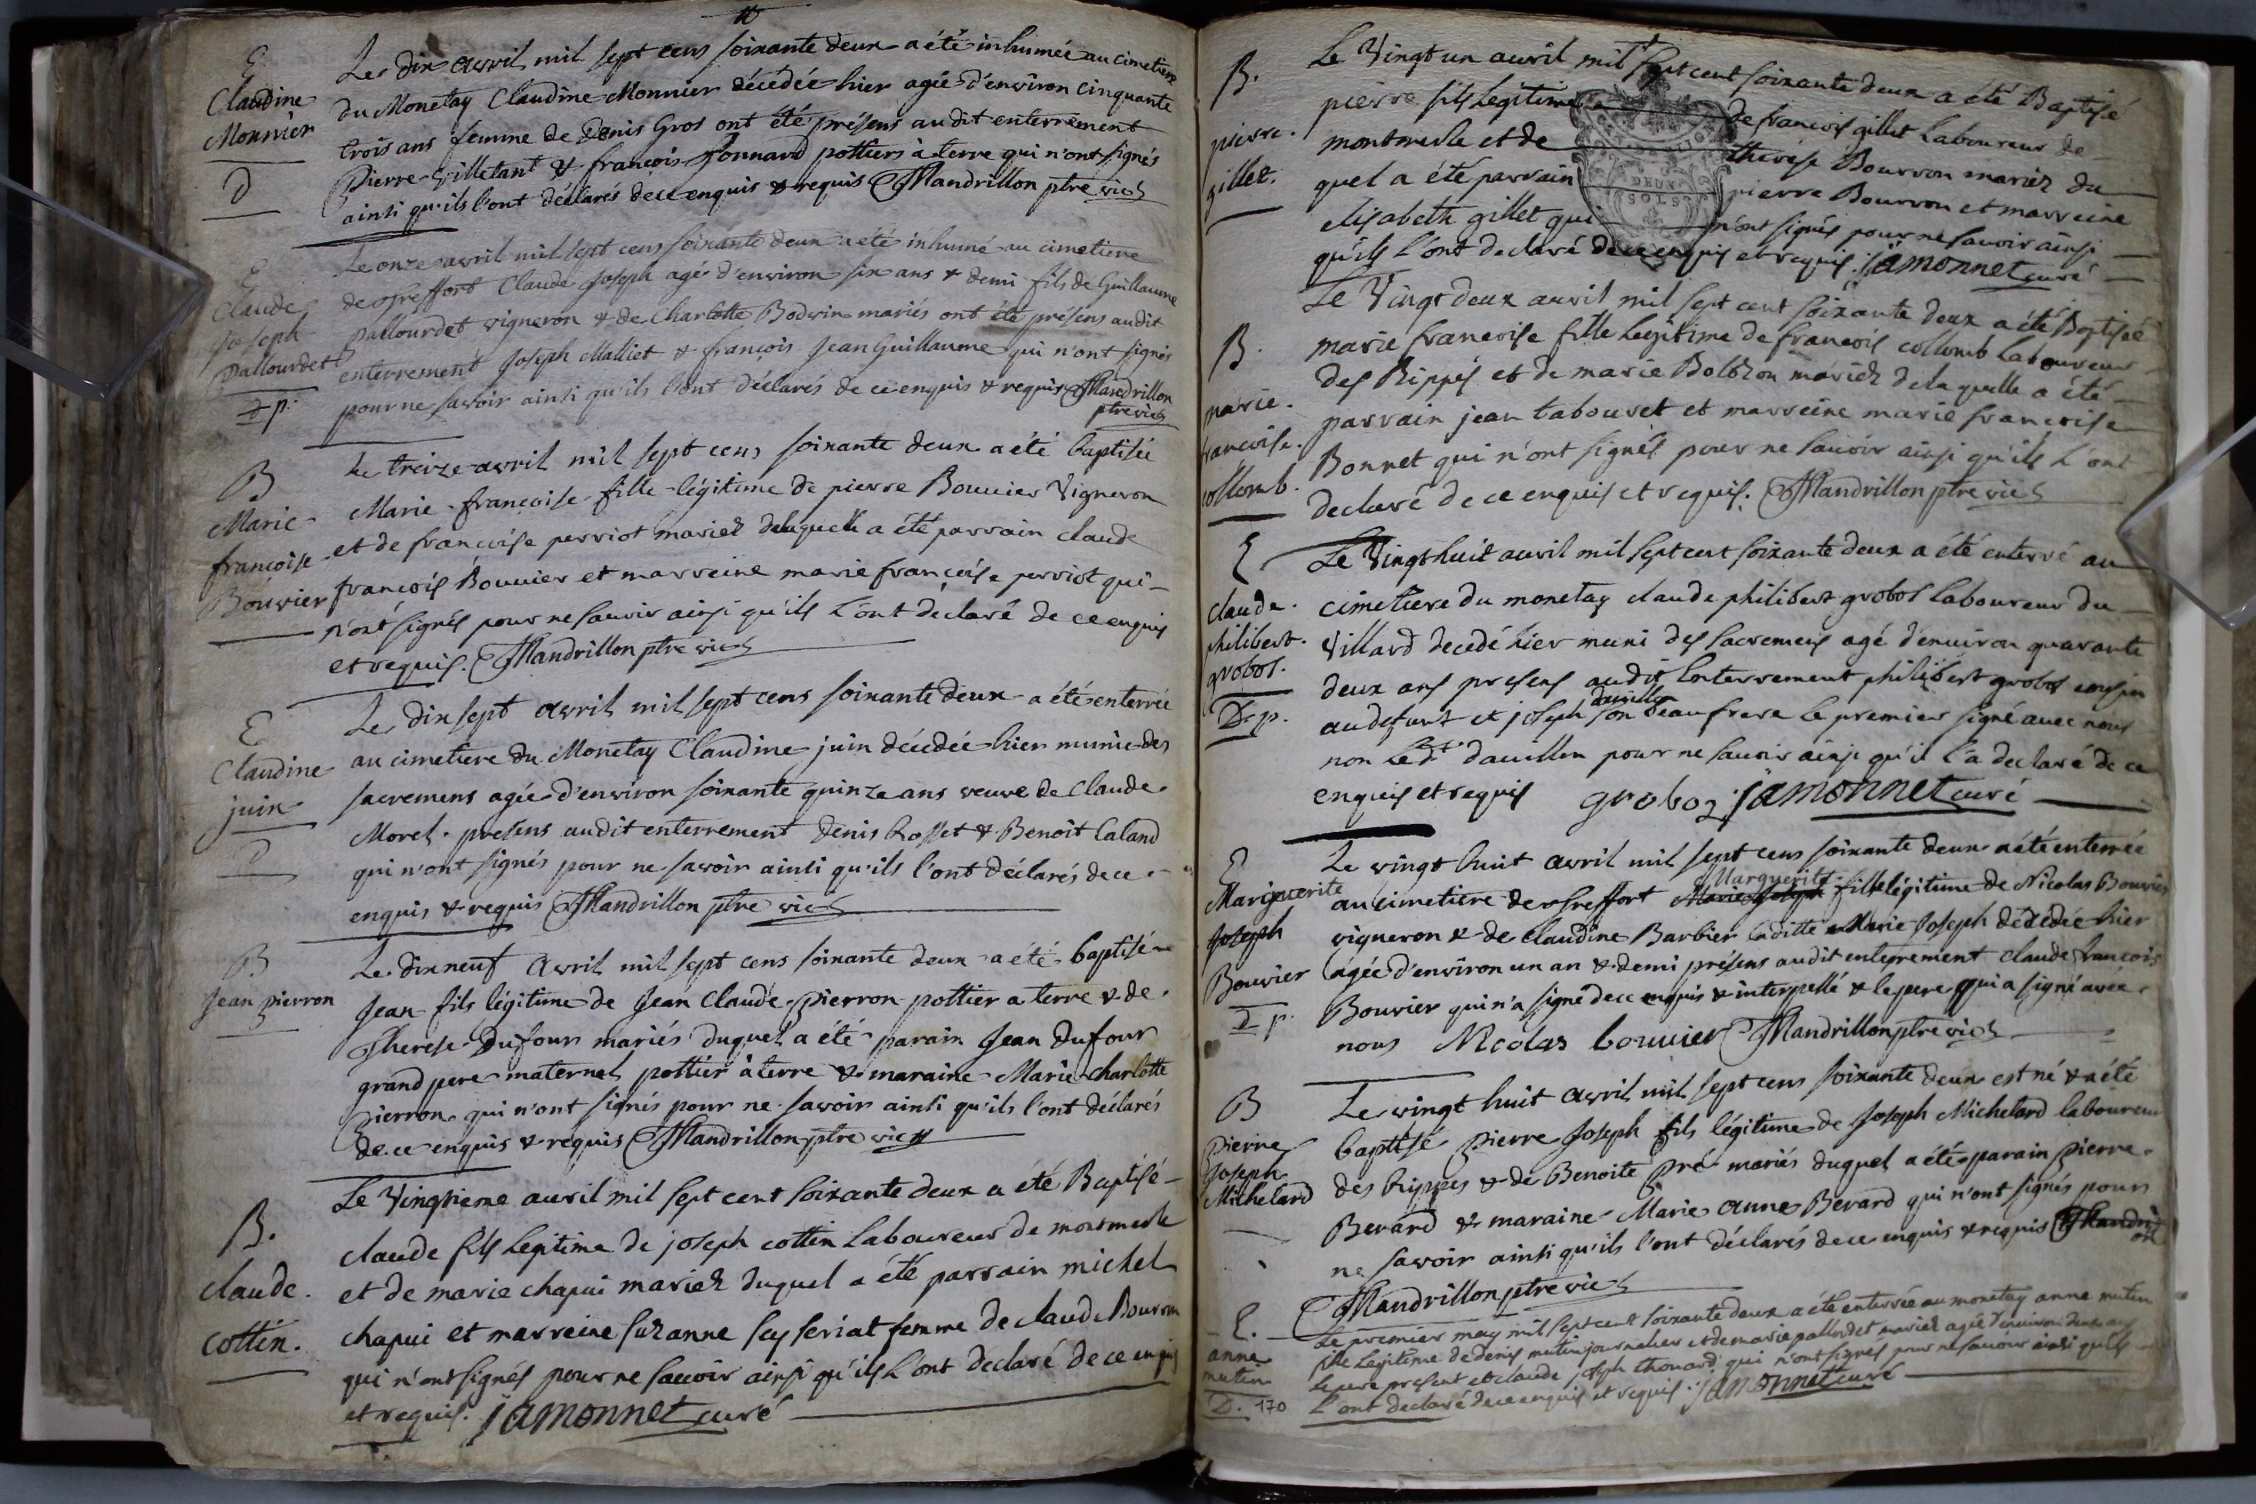 E
Claudine
Monnier
D
Le dix avril mil sept cens soixante deux a été inhumée au cimetiere
du Monetay Claudine Monnier décédée hier agée d'environ cinquante
trois ans femme de Denis Gros ont été présens audit enterrement
Pierre Villetant & françois Fonnard pottiers à terre qui n'ont signés
ainsi qu'ils l'ont déclarés de ce enquis & requis Mandrillon ptre vic
E
Claude
Joseph
Pallourdet
D p.
Le onze avril mil sept cens soixante deux a été inhumé au cimetiere
de Treffort Claude Joseph agé d'environ six ans & demi fils de Guillaume
Pallourdet vigneron & de Charlotte Bodvin mariés ont été présens audit
enterrement Joseph Malliet & françois Jean Guillaume qui n'ont signés
pour ne savoir ainsi qu'ils l'ont déclarés de ce enquis & requis Mandrillon
ptre vic
B
Marie
françoise
Bouvier
Le treize avril mil sept cens soixante deux a été baptisée
Marie françoise fille légitime de pierre Bouvier Vigneron
et de françoise perriot mariez de laquelle a été parrain claude
françois Bouvier et marreine marie françoise perriot qui
n'ont signés pour ne sauoir ainsi qu'ils l'ont déclaré de ce enquis
et requis. Mandrillon ptre vic
E
Claudine
juin
D
Le dix sept avril mil sept cens soixante deux a été enterrée
au cimetiere du Monetay Claudine juin décédée hier munie des
sacremens agée d'environ soixante quinze ans veuve de Claude
Morel. presens audit enterrement Denis Rosset & Benoit Caland
qui n'ont signés pour ne savoir ainsi qu'ils l'ont déclarés de ce
enquis & requis Mandrillon ptre vic
B
Jean Pierron
Le dix neuf avril mil sept cens soixante deux a été baptisé
Jean fils légitime de Jean Claude Pierron pottier a terre & de
Therese Dufour mariés duquel a été parain Jean Dufour
grand pere maternel pottier à terre & maraine Marie Charlotte
Pierron qui n'ont signés pour ne savoir ainsi qu'ils l'ont déclarés
de ce enquis & requis Mandrillon ptre vic
B.
claude.
cottin.
Le Vingtieme auril mil sept cent soixante deux a été Baptisé
claude fils legitime de joseph cottin Laboureur de montmerle
et de marie chapui mariez duquel a été parrain michel
chapui et marreine suzanne seyseriat femme de claude Bourron
qui n'ont signés pour ne sauoir ainsi qu'ils l'ont declaré de ce enquis
et requis. jamonnet curé
B.
pierre.
gillet.
Le Vingt un auril mil sept cent soixante deux a été Baptisé
pierre fils legitime de francois gillet Laboureur de
montmerle et de thérése Bourron mariez du
quel a été parrain pierre Bourron et marreine
elisabeth gillet qui n'ont signés pour ne sauoir ainsi
qu'ils l'ont declaré de ce enquis et requis. jamonnet curé
DEUX
SOLS
B.
marie.
francoise.
collomb.
Le Vingt deux auril mil sept cent soixante deux a été Baptisée
marie francoise fille legitime de francois collomb laboureur
des Rippes et de marie Bolozon mariez de laquelle a été
parrain jean tabouret et marreine marie francoise
Bonnet qui n'ont signés pour ne sauoir ainsi qu'ils l'ont
declaré de ce enquis et requis. Mandrillon ptre vic
E
claude.
philibert.
grobos.
D. p.
Le Vingt huit auril mil sept cent soixante deux a été enterré au
cimetiere du monetay claude philibert grobos laboureur du
Villard decedé hier muni des sacremens agé d'enuiron quarante
deux ans presens audit enterrement philibert grobos cousin
dauillon
au defunt et joseph son beau frere le premier signé avec nous
non le dt. dauillon pour ne sauoir ainsi qu'il l'a declaré de ce
enquis et requis groboz jamonnet curé
E
Marguerite
Joseph
Bouvier
D p.
Le vingt huit avril mil sept cens soixante deux a été enterrée
Marguerite
au cimetiere de Treffort Marie Joseph fille légitime de Nicolas Bouvier
vigneron & de Claudine Barbier laditte Marie Joseph décédée hier
agée d'environ un an & demi présens audit enterrement claude françois
Bouvier qui n'a signé de ce enquis & interpellé & le pere qui a signé avec
nous Nicolas bouuier Mandrillon ptre vic
B
Pierre
Joseph
Michelard
Le vingt huit avril mil sept cens soixante deux est né & a été
baptisé Pierre Joseph fils légitime de Joseph Michelard laboureur
des Rippes & de Benoite Pré mariés duquel a été parain Pierre
Berard & maraine Marie Anne Berard qui n'ont signés pour
ne savoir ainsi qu'ils l'ont déclarés de ce enquis & requis
Mandrillon ptre vic
E.
anne
mutin
D. 170
Le premier may mil sept cent soixante deux a été enterrée au monetay anne mutin
fille legitime de denis mutin journalier et de marie pallordet mariez agée d'enuiron deux ans
le pere present et claude joseph thonard qui n'ont signés pour ne sauoir ainsi qu'ils
l'ont declaré de ce enquis et requis. jamonnet curé